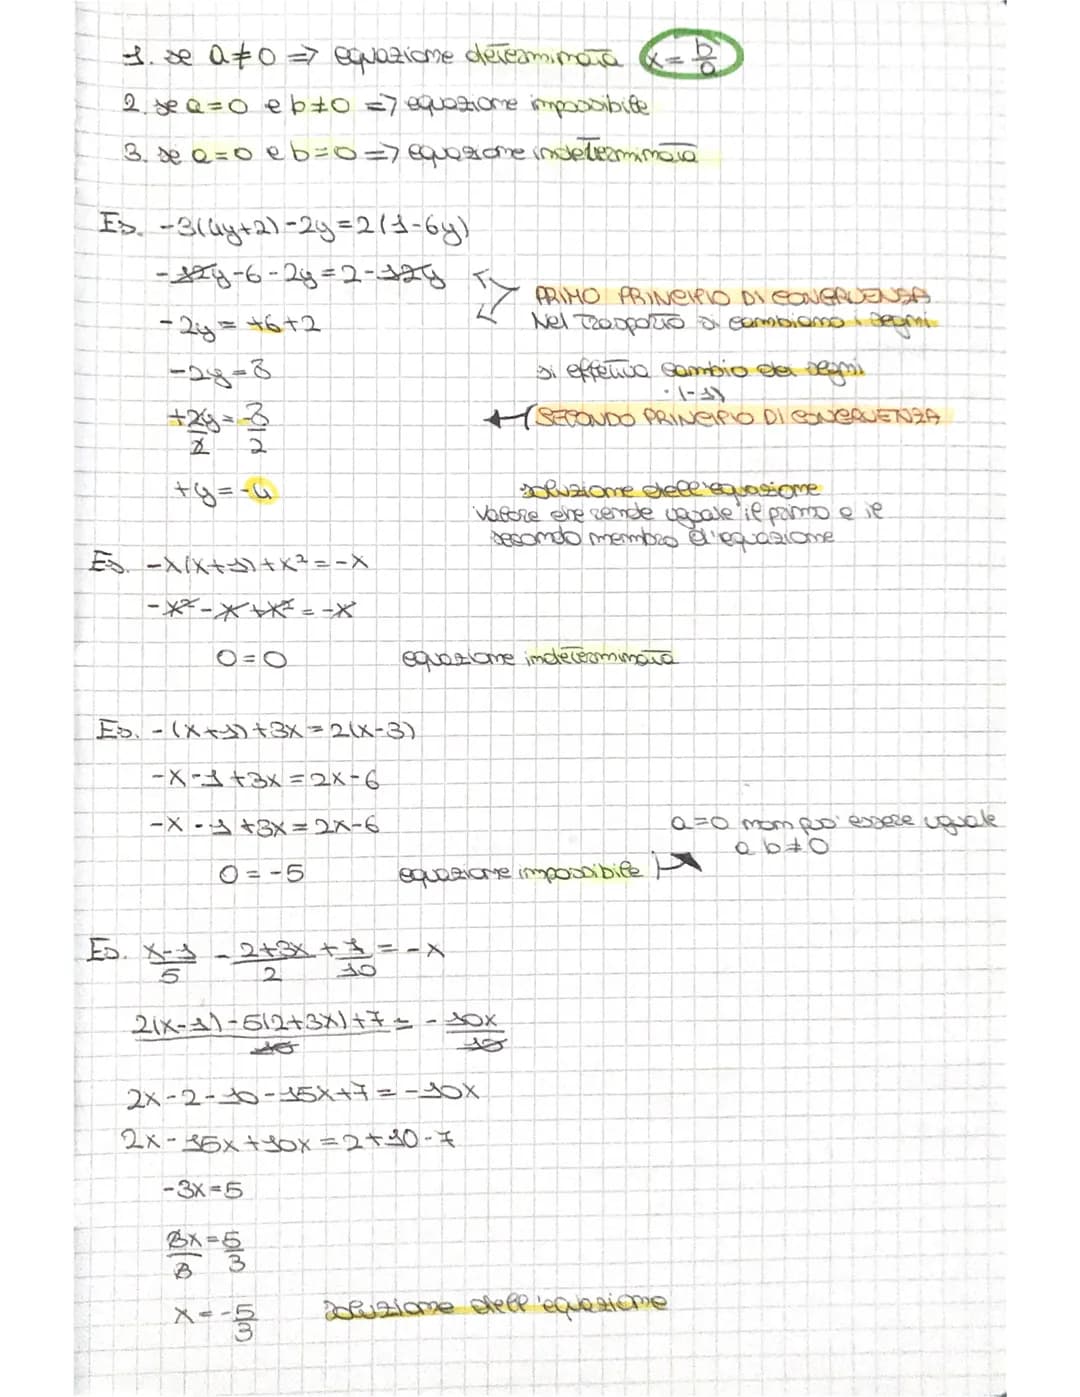 1. se a≠0 => equazione determinata x = b/a
2. se a=0 e b≠0 => equazione impossibile
3. se a=0 e b=0 => equazione indeterminata
Es. -3(4y+2)-2y=2(1-6y)
-12y-6-2y=2-12y
PRIMO PRINCIPIO DI CONGRUENZA
-2y= +6+2
Nel trasporto si cambiano i segni
-2y=8
si effettua cambio dei segni
·(-1)
+2y/2 = -8/2
SECONDO PRINCIPIO DI CONGRUENZA
+y=-4
soluzione dell'equazione
valore che rende uguale il primo e il
secondo membro d'equazione
Es. -x(x+1)+x²=-x
-x²-x+x²=-x
0=0 equazione indeterminata
Es. -(x+1)+3x=2(x-3)
-x-1+3x=2x-6
-x-1+3x=2x-6
a=0 non può essere uguale
a b≠0
0=-5 equazione impossibile
Es. x-1/5 - 2+3x/2 + 7/10 = -x
2(x-1)-5(2+3x)+7/10 = -10x/10
2x-2-10-15x+7=-10x
2x-15x+10x=2+10-7
-3x=5
3x/3=5/3
x=-5/3 soluzione dell'equazione